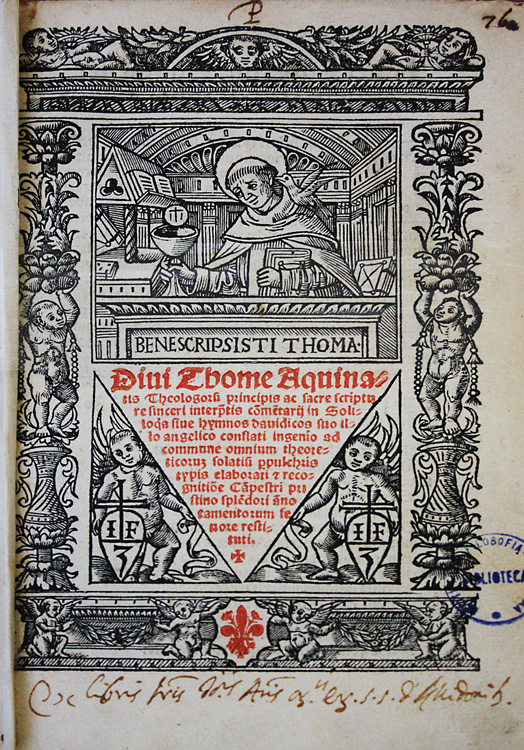 76
BENE SCRIPSISTI THOMA·
Diui Thome Aquina⸗
tis Theologorũ principis ac sacre scriptu
re sinceri interp̃tis cõmẽtarij in Soli⸗
loq̃a siue hymnos dauidicos suo il⸗
lo angelico conflati ingenio ad
commune omnium theore⸗
ticorum solatiũ
typis elaborati ⁊ reco⸗
gnitiõe Cãpestri pri
stino splẽdori ãno
tamentorum fe
nore resti⸗
tuti.
I F
I F
OSOFIA
BIBLIOTECA
libris